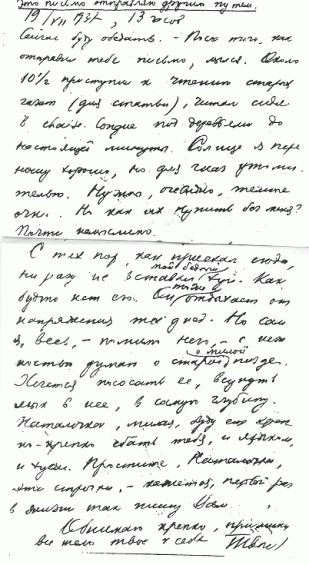 Это письмо отправляю другим путем.
19/VII 1937, 13 часов
Сейчас буду обедать. - После того, как
отправил тебе письмо, мылся. Около
10½ приступил к чтению старых
газет (для статьи), читал сидя
в chaise longue под деревьями до
настоящей минуты. Солнце я пере
ношу хорошо, но для глаз утоми
тельно. Нужно, очевидно, темные
очки. Но как их купить без меня?
Почти немыслимо.
С тех пор, как приехал сюда,
ни разу не вставал мой бедный хуй. Как
будто нет его. Он тоже отдыхает от
напряжения тех дней. Но сам
я, весь, - помимо него, - с неж
ностью думаю о старой, о милой пизде.
Хочется пососать ее, всунуть
язык в нее, в самую глубину.
Наталочка, милая, буду еще креп
ко-крепко ебать тебя, и языком,
и хуем. Простите, Наталочка,
эти строчки, - кажется, первый раз
в жизни так пишу Вам.
Обнимаю крепко, прижимая
все тело твое к себе. Твой